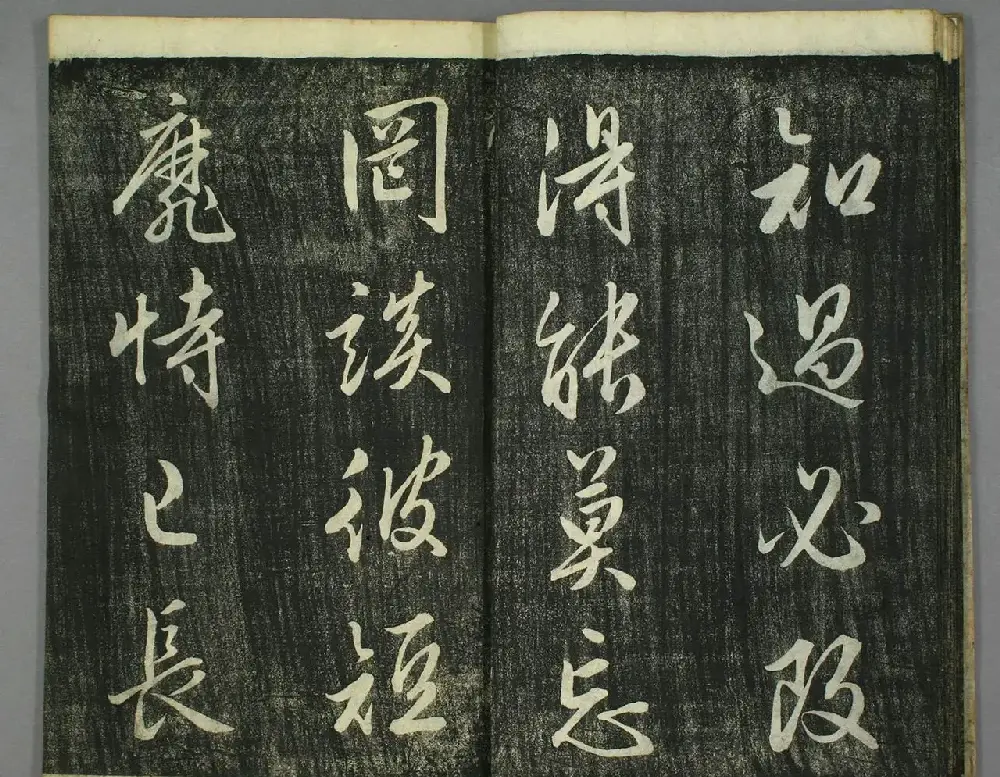 知過必改
得能莫忘
罔談彼短
靡恃己長